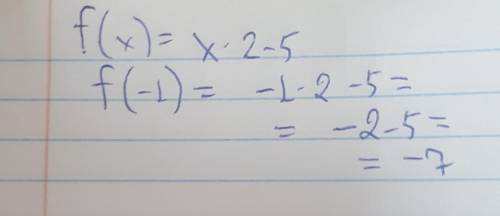 f(x) = x · 2 - 5
f(-1) = -1 · 2 - 5 =
= -2 - 5 =
= -7